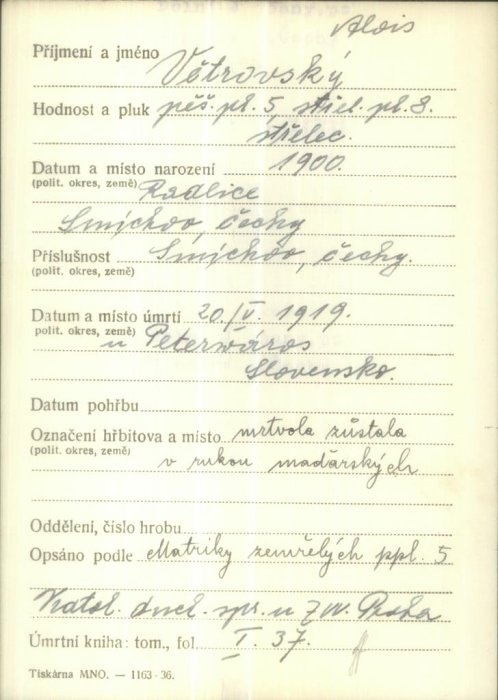 Alois
Příjmení a jméno Větrovský
Hodnost a pluk pěš. pl. 5, střel. pl. 8.
střelec.
Datum a místo narození 1900.
(polit. okres, země) Radlice
Smíchov, Čechy
Příslušnost Smíchov, Čechy.
(polit. okres, země)
Datum a místo úmrtí 20./V. 1919.
polit. okres, země)
u Peterwáros
Slovensko.
Datum pohřbu
Označení hřbitova a místo mrtvola zůstala
(polit. okres, země)
v rukou maďarských
Oddělení, číslo hrobu
Opsáno podle Matriky zemřelých ppl. 5
Katol. duch. spr. u ZV. Praha
Úmrtní kniha: tom., fol. I. 37.
Tiskárna MNO. — 1163-36.